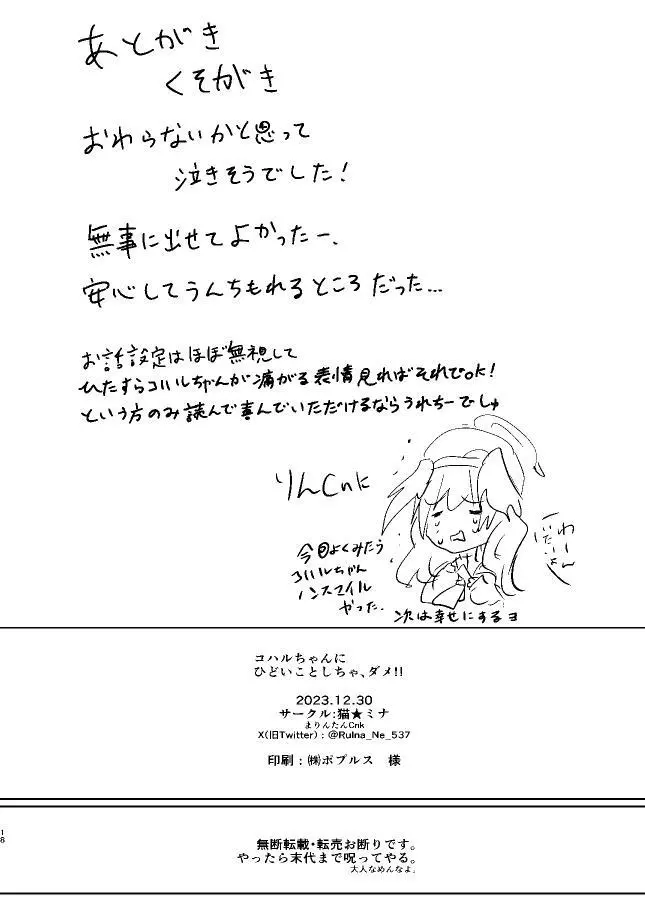 あとがき
くそがき
おわらないかと思って
泣きそうでした!
無事に出せてよかったー、
安心してうんちもれるところだった...
お話設定はほぼ無視して
ひたすらコハルちゃんが痛がる表情見ればそれでok!
という方のみ読んで喜んでいただけるならうれちーでしゅ
りんCnに
わーん
いたいよぉ
今回よくみたら
コハルちゃん
ノンスマイル
やった.
次は幸せにするヨ
コハルちゃんに
ひどいことしちゃ、ダメ!!
2023.12.30
サークル:猫★ミナ
まりんたんCnk
X(旧Twitter):@Rulna_Ne_537
印刷:㈱ポプルス 様
18
無断転載・転売お断りです。
やったら末代まで呪ってやる。
大人なめんなよ」